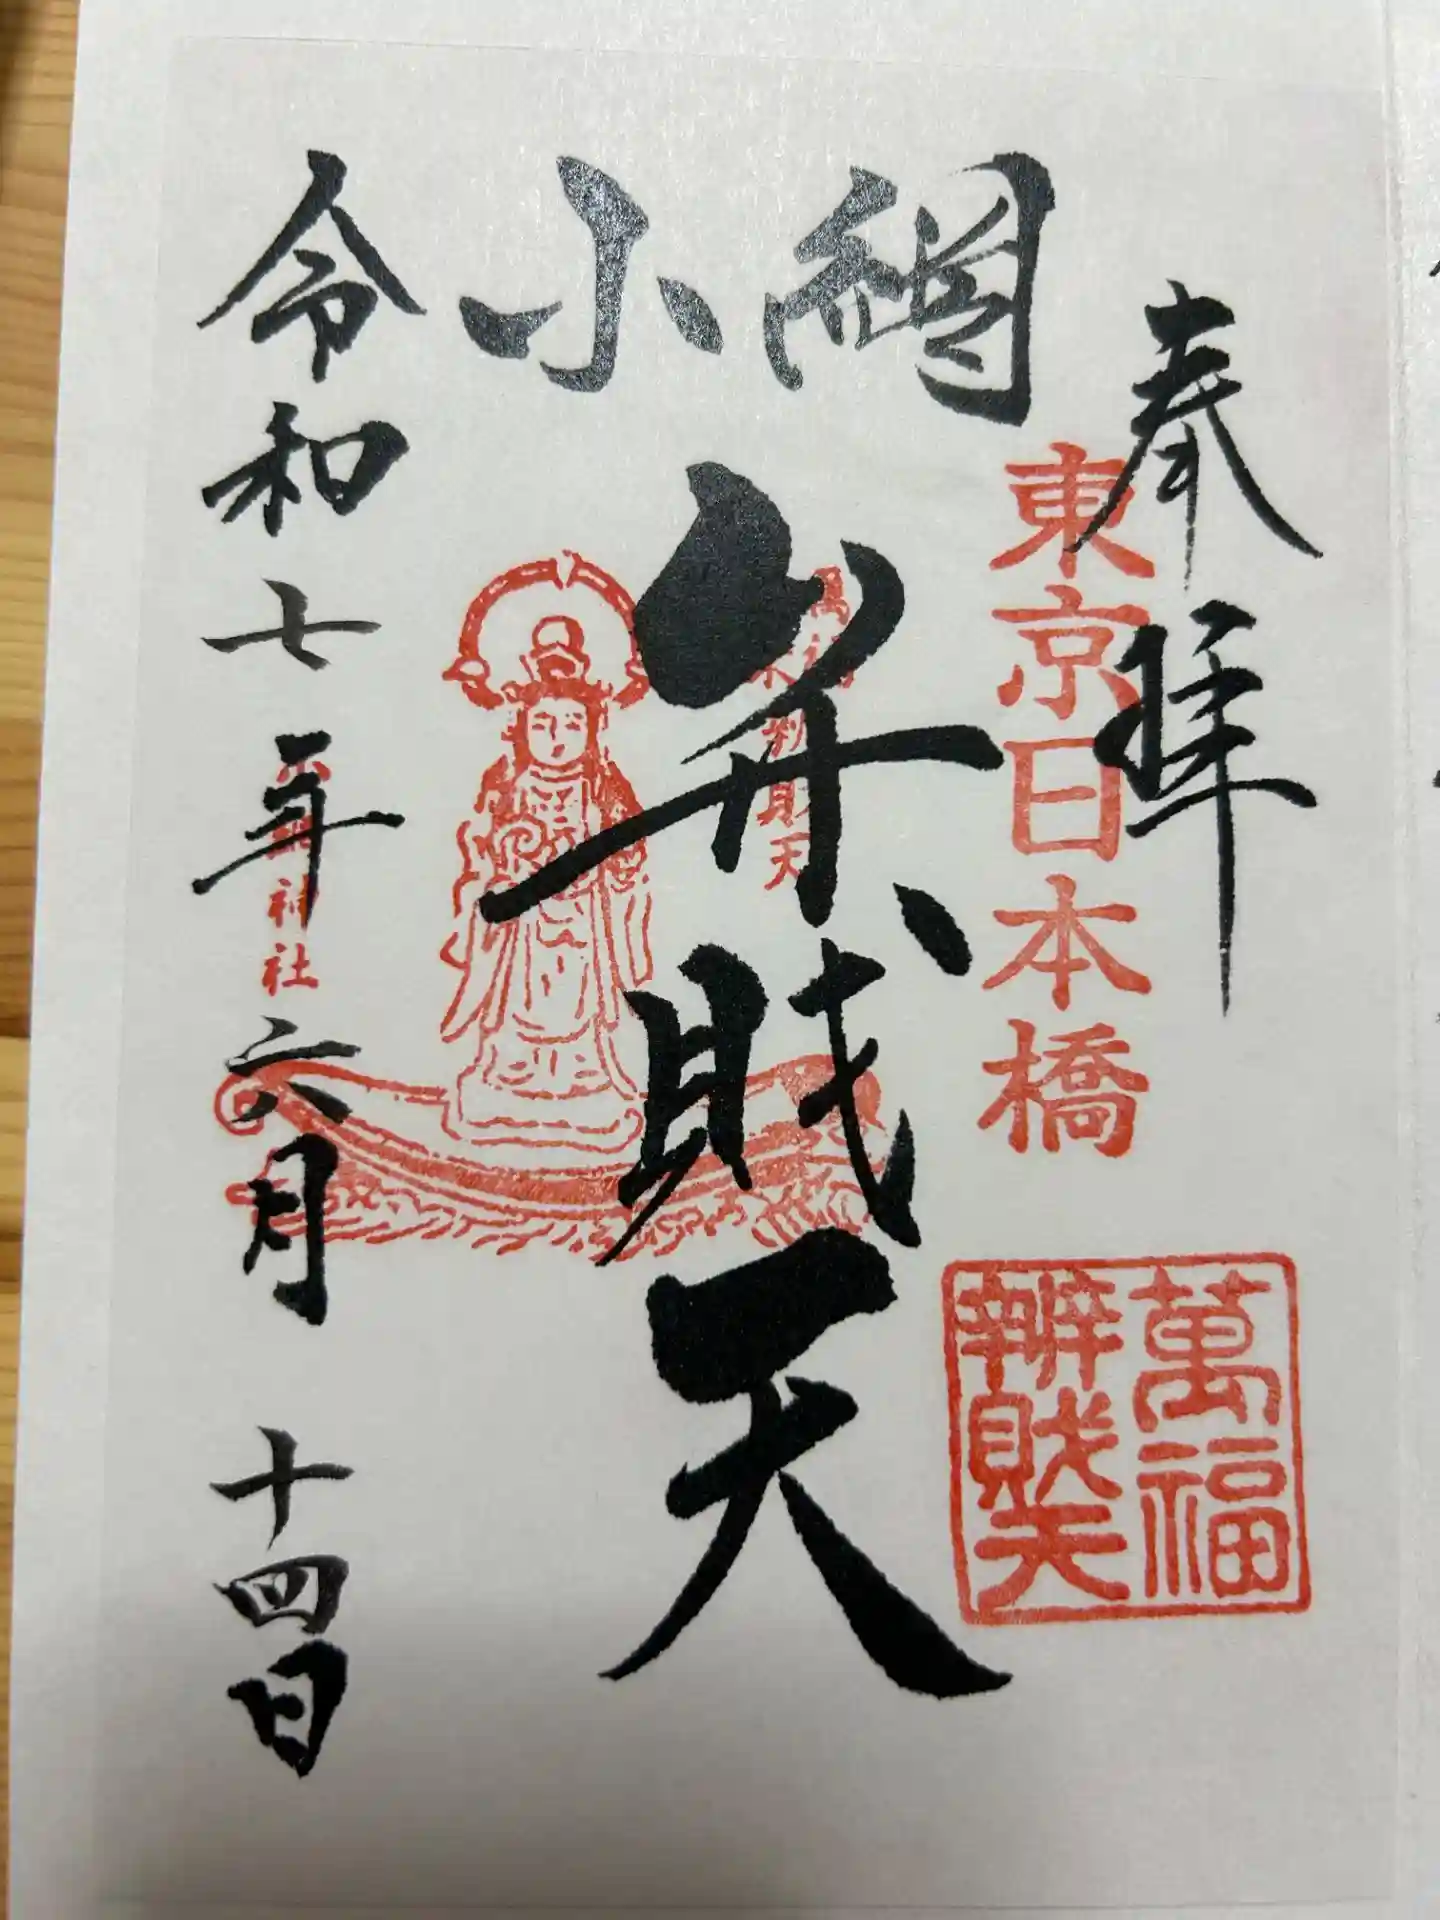 奉拝
東京日本橋
萬福
辨財天
小網
弁財天
令和七年六月十四日
神社